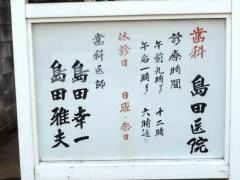 歯科 島田医院
診療時間
午前九時〜十二時
午后一時〜六時迄
休診日 日曜・祭日
歯科医師
島田幸一
島田雅夫